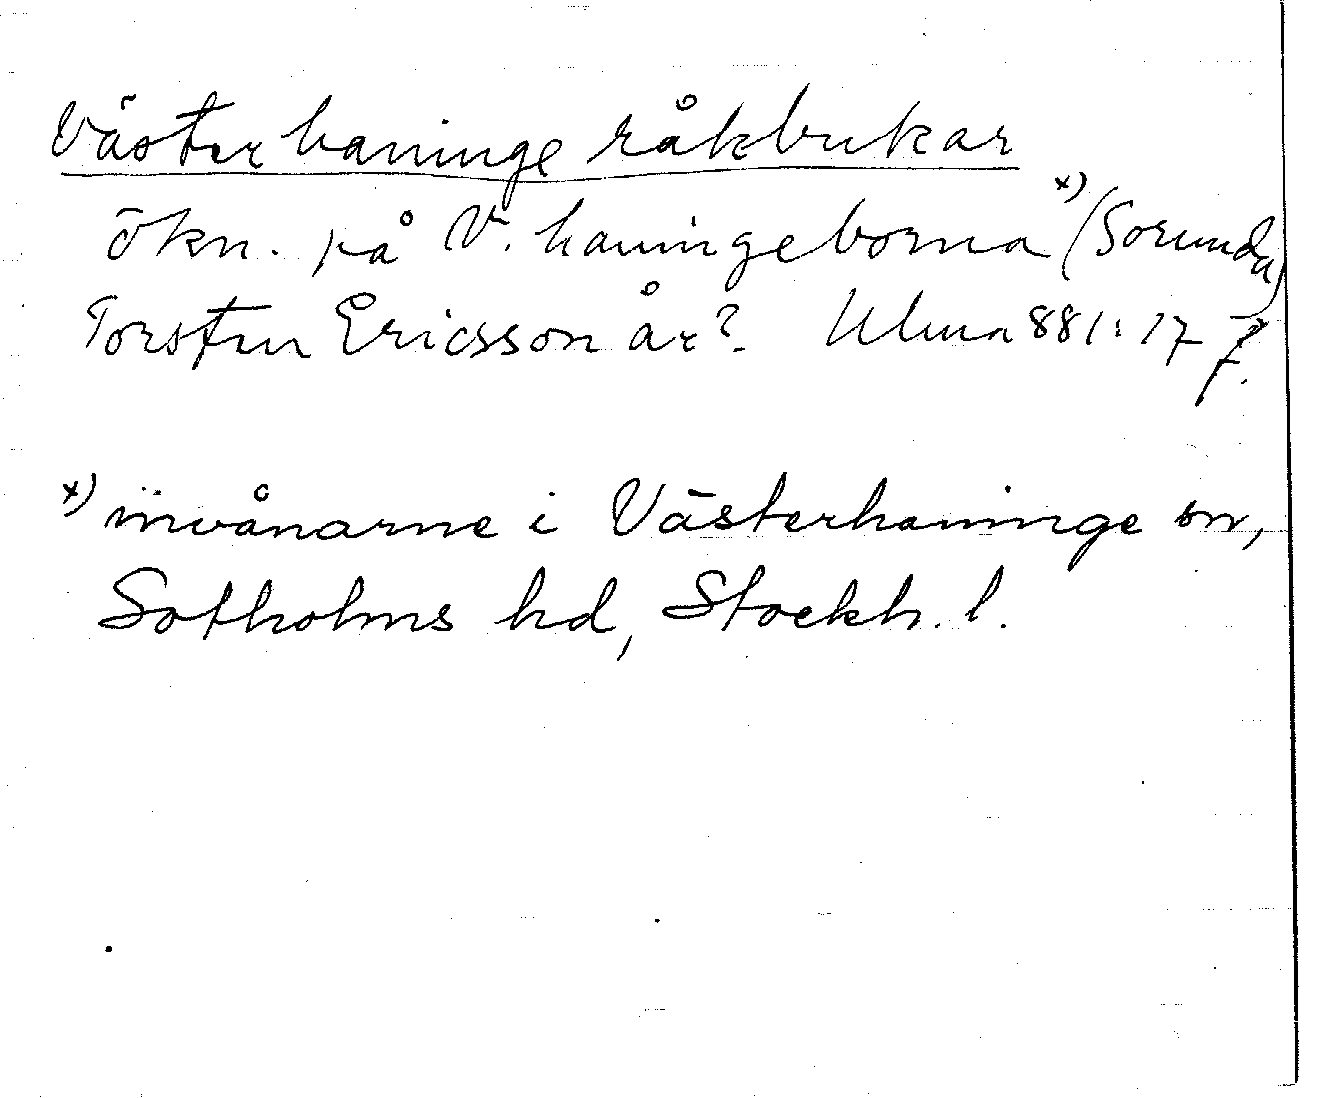 Västerhaninge råkbukar
ökn. på V. haningeborna x) (Sorunda)
Torsten Ericsson år? Ulma 881:17 7.
x) invånarne i Västerhaninge sn,
Sotholms hd, Stockh. l.